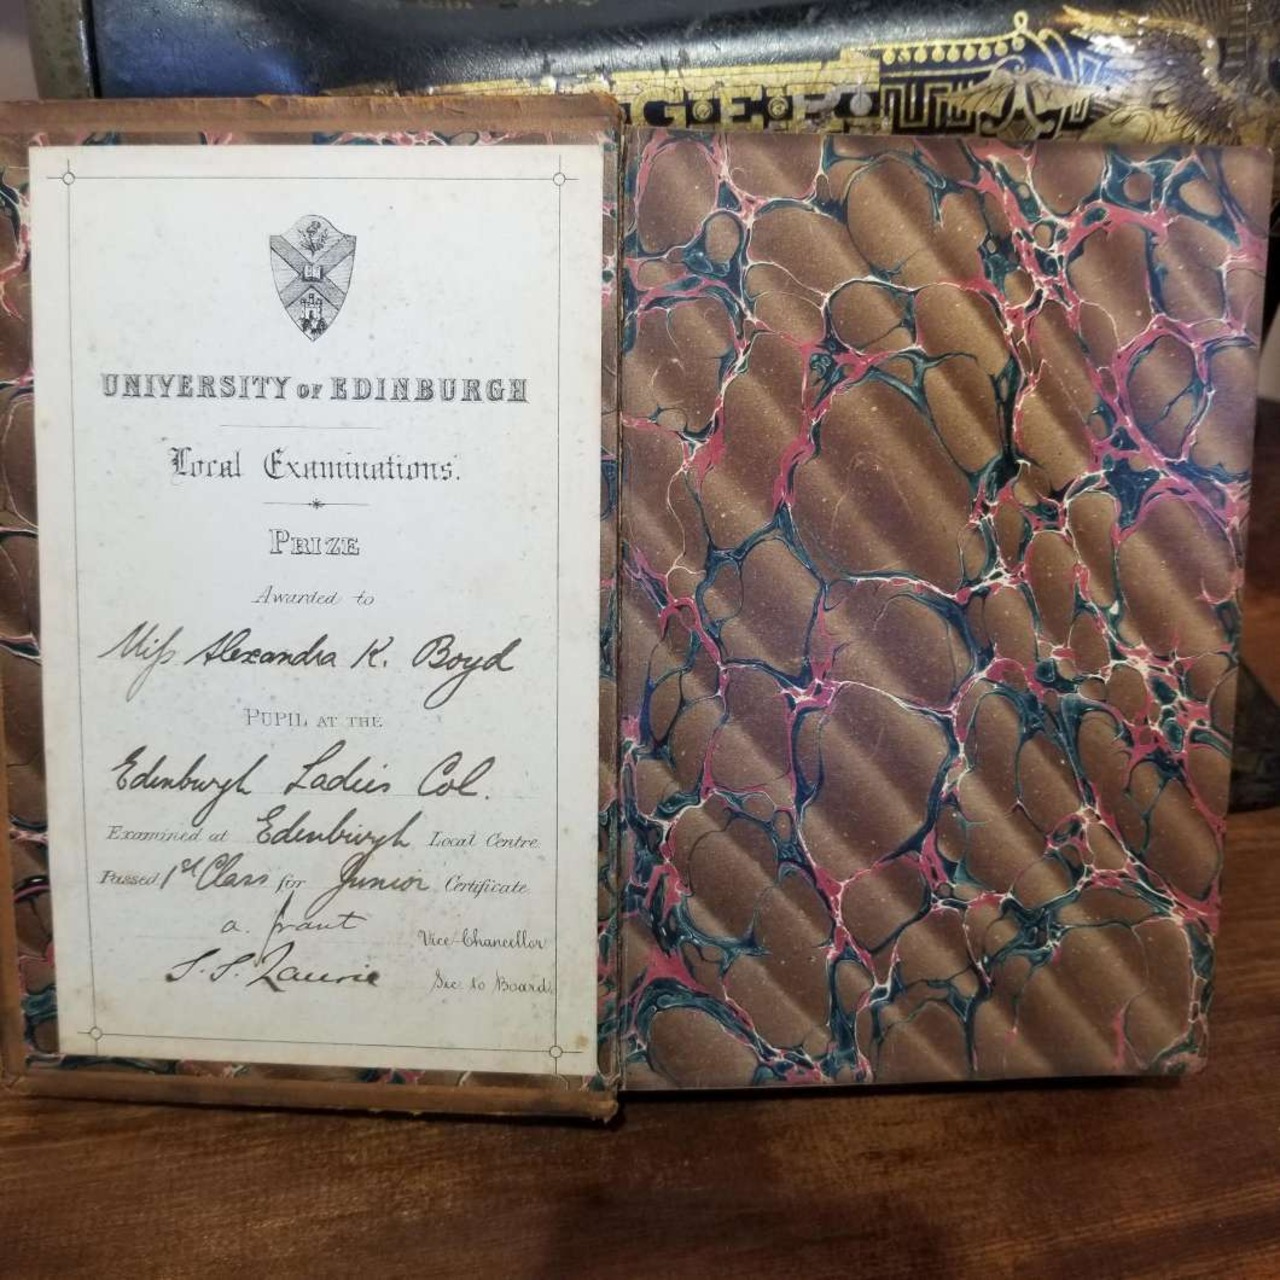 GER
UNIVERSITY OF EDINBURGH
Local Examinations.
PRIZE
Awarded to
Miss Alexandra K. Boyd
PUPIL AT THE
Edinburgh Ladies Col.
Examined at Edinburgh Local Centre
Passed 1st Class for Junior Certificate
A. Grant Vice-Chancellor
S. S. Laurie Sec: to Board.